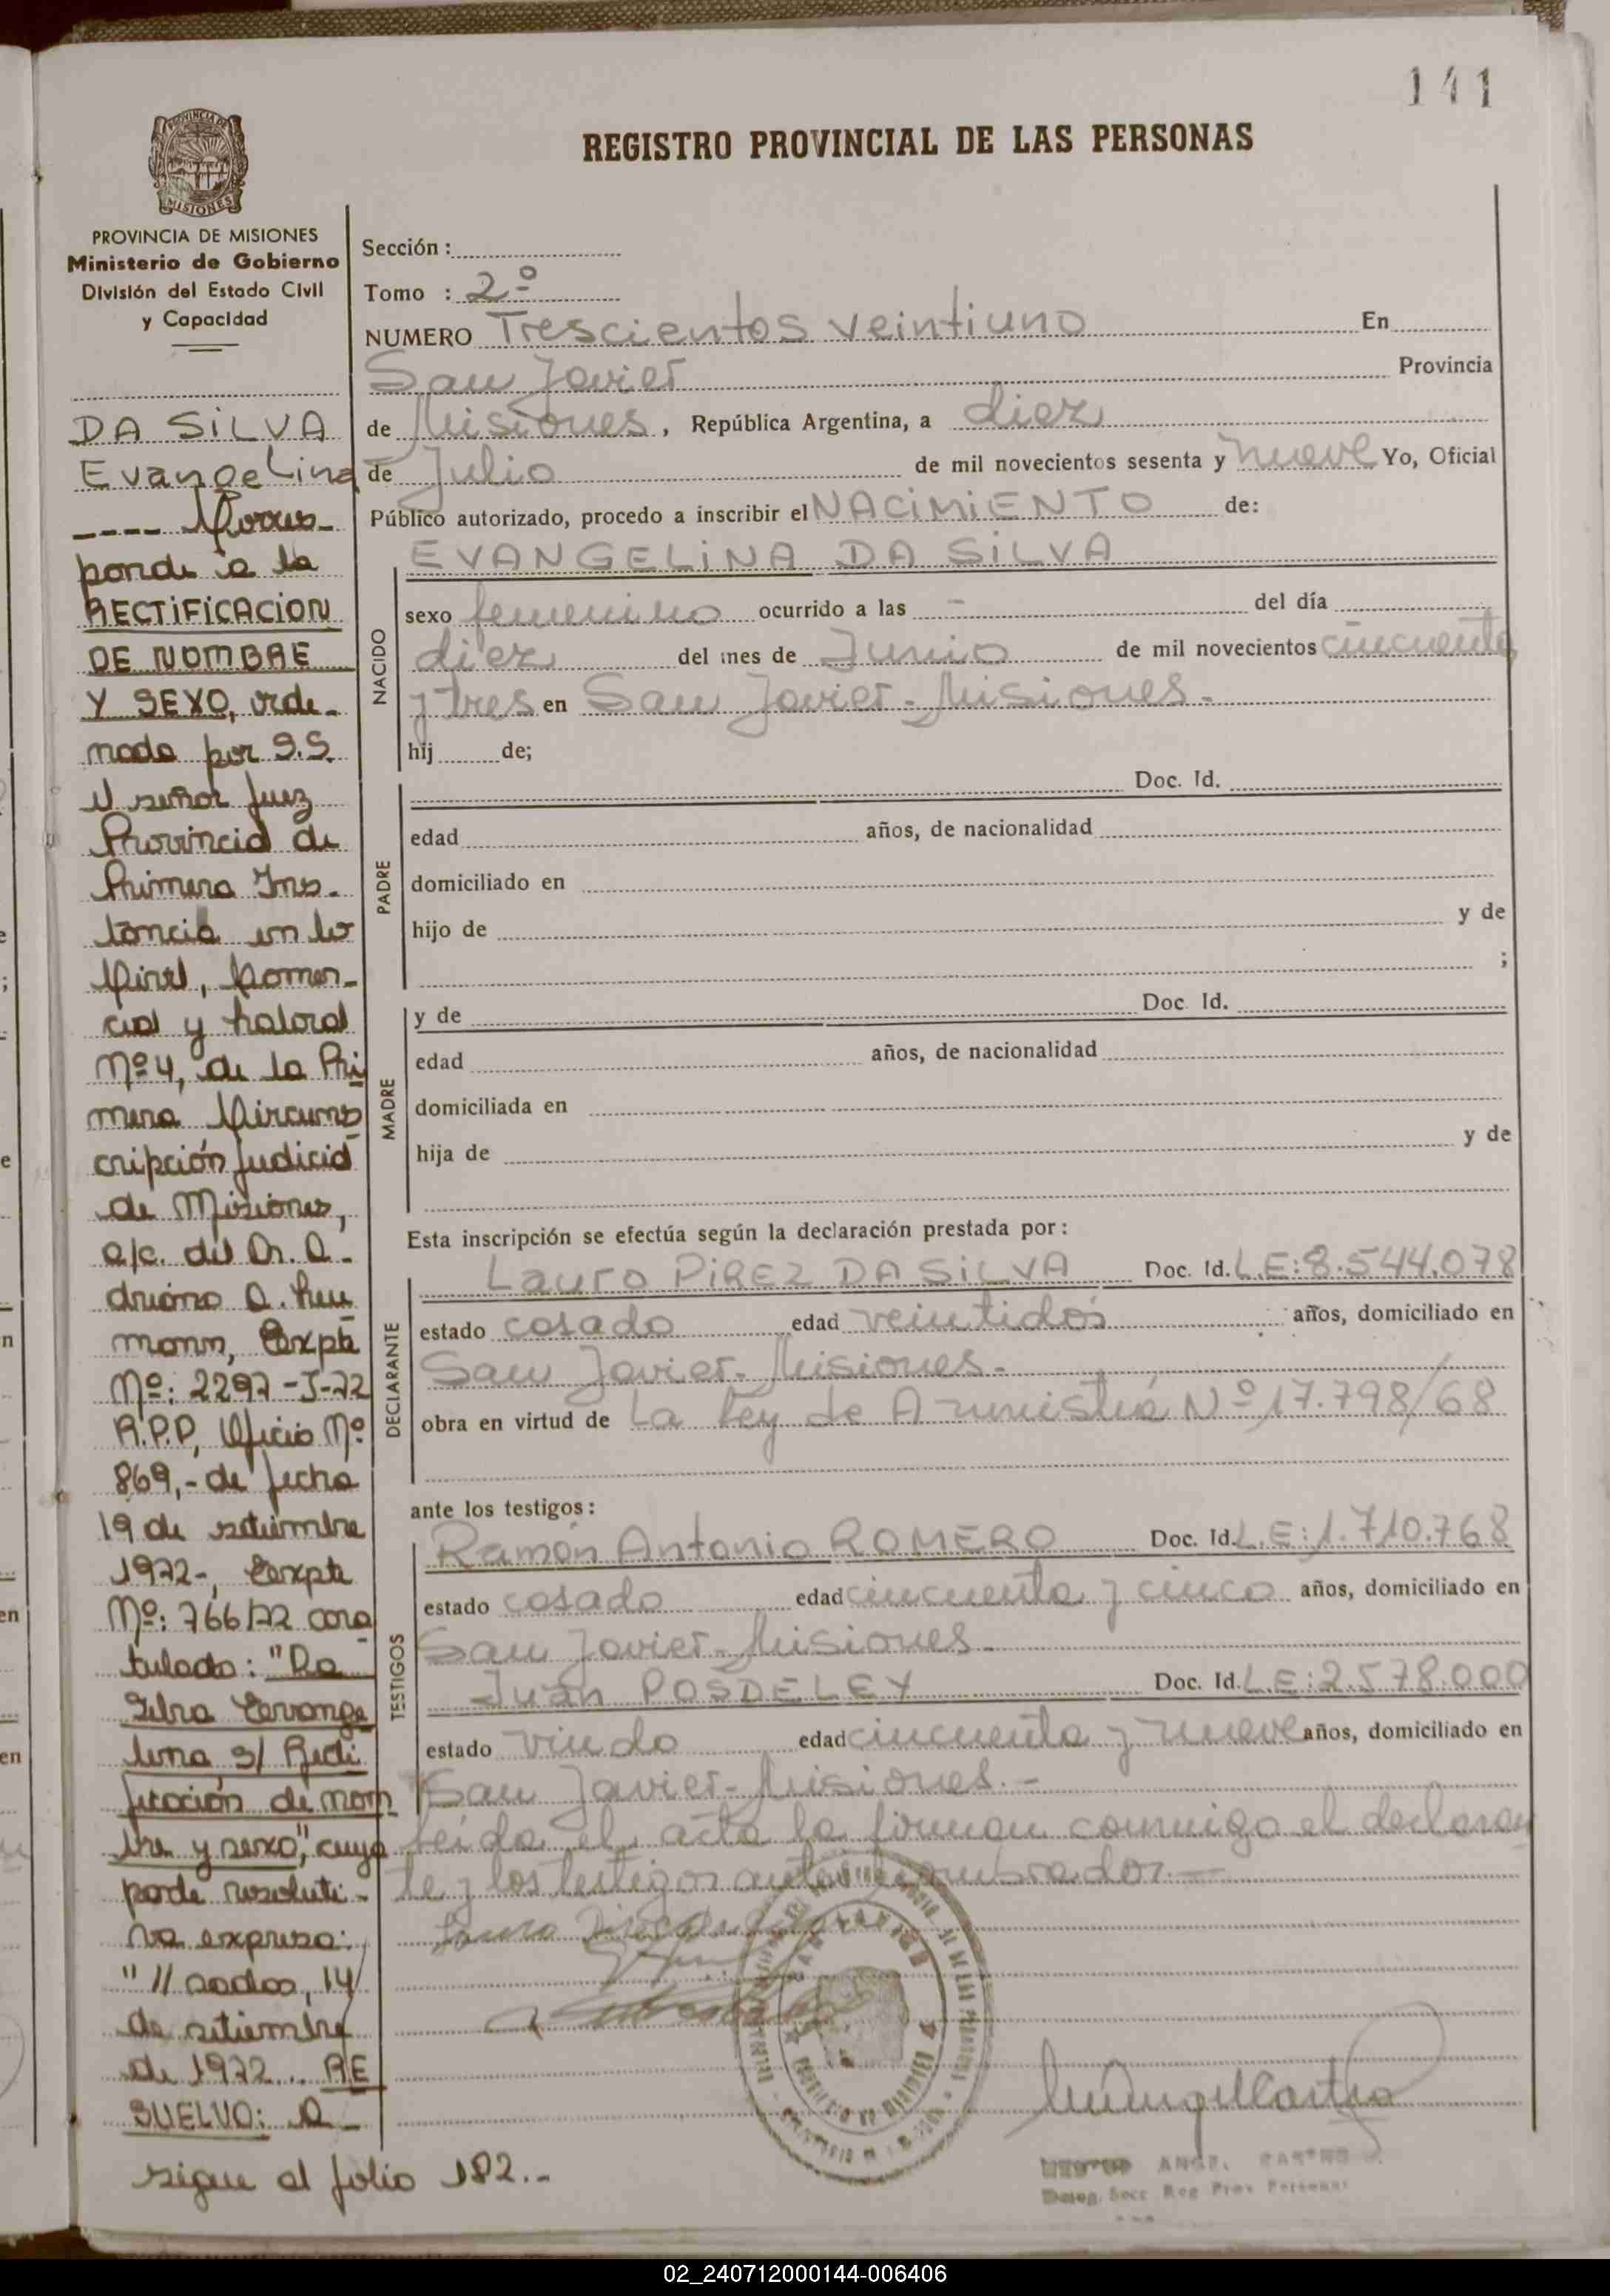 141
REGISTRO PROVINCIAL DE LAS PERSONAS
PROVINCIA DE MISIONES
PROVINCIA DE MISIONES
Ministerio de Gobierno
División del Estado Civil
y Capacidad
DA SILVA
Evangelina
---- Corres-
ponde a la
RECTIFICACION
DE NOMBRE
Y SEXO, orde-
nada por S.S.
el señor Juez
Provincial de
Primera Ins-
tancia en lo
Civil, Comer-
cial y Laboral
Nº 4, de la Pri
mera Circuns
cripción Judicial
de Misiones,
a/c. del Dr. A-
driano A.
Expte
Nº: 2297-J-72
R.P.P, Oficio Nº
869,- de fecha
19 de setiembre
1972-, Expte
Nº: 766/72 cara
tulado: "Da
Silva Evange
lina s/ Recti
ficación de nom
bre y sexo", cuya
parte resoluti-
va expresa:
"//sadas, 14
de setiembre
de 1972... RE
SUELVO: A-
sigue al folio 182.-
Sección :
Tomo : 2º
NUMERO Trescientos veintiuno En
San Javier Provincia
de Misiones, República Argentina, a diez
de Julio de mil novecientos sesenta y nueve Yo, Oficial
Público autorizado, procedo a inscribir el NACIMIENTO de:
NACIDO
EVANGELINA DA SILVA
sexo femenino ocurrido a las - del día
diez del mes de Junio de mil novecientos cincuenta
y tres en San Javier - Misiones -
hij de;
PADRE
Doc. Id.
edad años, de nacionalidad
domiciliado en
hijo de y de
;
MADRE
y de Doc. Id.
edad años, de nacionalidad
domiciliada en
hija de y de
Esta inscripción se efectúa según la declaración prestada por :
DECLARANTE
Lauro PIREZ DA SILVA Doc. Id. L.E: 8.544.078
estado casado edad veintidos años, domiciliado en
San Javier - Misiones -
obra en virtud de La Ley de Amnistía Nº 17.798/68
ante los testigos :
TESTIGOS
Ramón Antonio ROMERO Doc. Id. L.E: 1.710.768
estado casado edad cincuenta y cinco años, domiciliado en
San Javier - Misiones -
Juan POSDELEY Doc. Id. L.E: 2.578.000
estado viudo edad cincuenta y nueve años, domiciliado en
San Javier - Misiones. -
Leída el acta la firman conmigo el declaran
te y los testigos antes nombrados. —
02_240712000144-006406